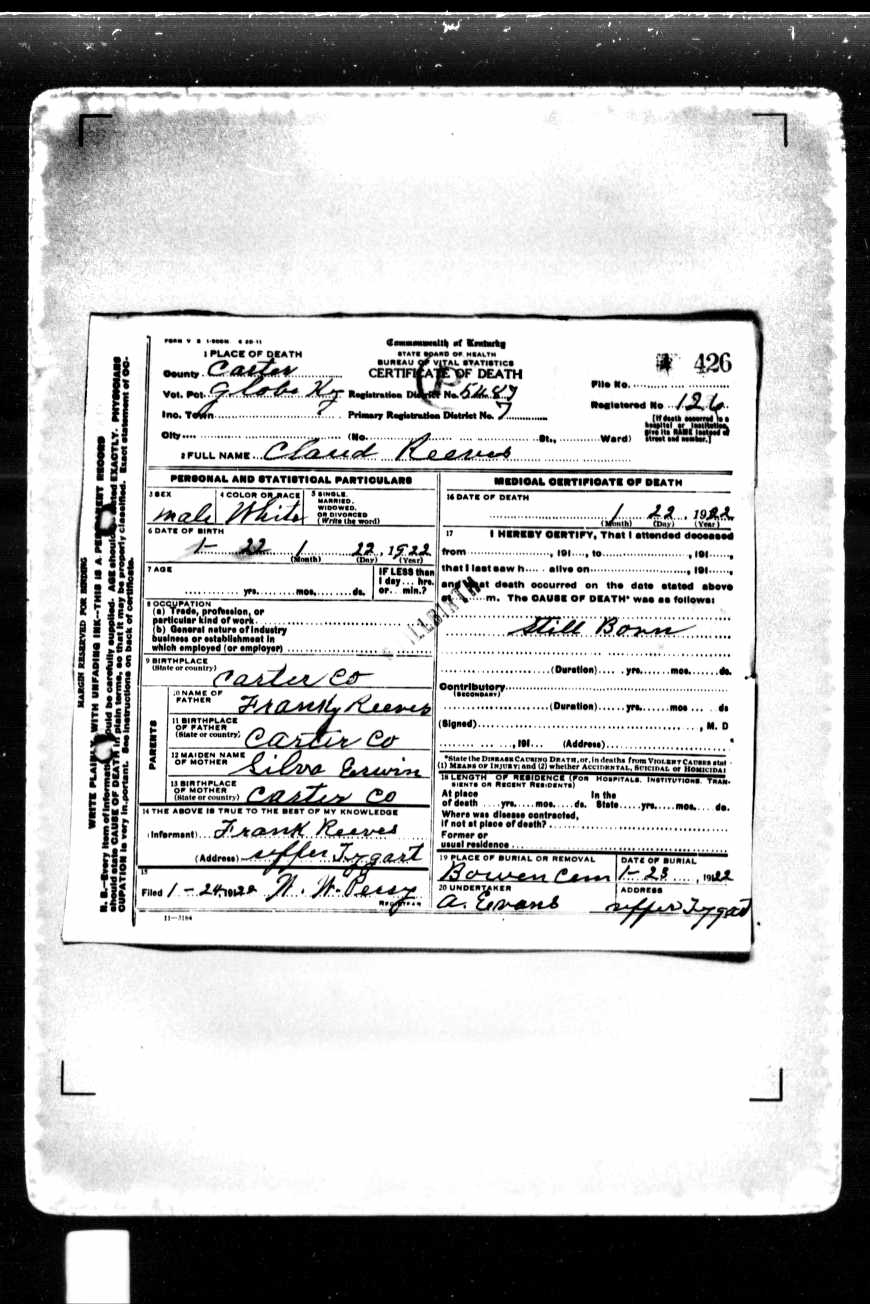 FORM V S 1-500M 6 20-11
1 PLACE OF DEATH
County Carter
Vot. Pct. Globe Ky
Inc. Town 7
City
Commonwealth of Kentucky
STATE BOARD OF HEALTH
BUREAU OF VITAL STATISTICS
CERTIFICATE OF DEATH
Registration District No. 5487
Primary Registration District No. 7
(No. St., Ward)
426
File No.
Registered No 126
[If death occurred in a
hospital or institution,
give its NAME instead of
street and number.]
2 FULL NAME Claud Reeves
PERSONAL AND STATISTICAL PARTICULARS
3 SEX
male
4 COLOR OR RACE
White
5 SINGLE,
MARRIED,
WIDOWED,
OR DIVORCED
(Write the word)
6 DATE OF BIRTH
1- 22 1 22, 1922
(Month) (Day) (Year)
7 AGE
yrs. mos. ds.
IF LESS than
1 day ... hrs.
or ... min.?
8 OCCUPATION
(a) Trade, profession, or
particular kind of work
(b) General nature of industry
business or establishment in
which employed (or employer)
9 BIRTHPLACE
(State or country)
Carter Co
PARENTS
10 NAME OF
FATHER
Frank Reeves
11 BIRTHPLACE
OF FATHER
(State or country)
Carter Co
12 MAIDEN NAME
OF MOTHER
Silva Erwin
13 BIRTHPLACE
OF MOTHER
(State or country)
Carter Co
14 THE ABOVE IS TRUE TO THE BEST OF MY KNOWLEDGE
(Informant) Frank Reeves
(Address) upper Tygart
15
Filed 1-24, 19122 W. W. Perry
REGISTRAR
11—3184
MEDICAL CERTIFICATE OF DEATH
16 DATE OF DEATH
1 22, 1922
(Month) (Day) (Year)
17 I HEREBY CERTIFY, That I attended deceased
from , 191 , to , 191 ,
that I last saw h alive on , 191 ,
and that death occurred on the date stated above
at m. The CAUSE OF DEATH* was as follows:
STILLBIRTH
Still Born
(Duration) yrs. mos. ds.
Contributory
(SECONDARY)
(Duration) yrs. mos ds
(Signed) , M. D
, 191 (Address)
*State the DISEASE CAUSING DEATH, or, in deaths from VIOLENT CAUSES stat
(1) MEANS OF INJURY; and (2) whether ACCIDENTAL, SUICIDAL or HOMICIDAL
18 LENGTH OF RESIDENCE (FOR HOSPITALS, INSTITUTIONS, TRAN-
SIENTS OR RECENT RESIDENTS)
At place of death yrs. mos. ds. In the State yrs. mos. ds.
Where was disease contracted,
if not at place of death?
Former or
usual residence
19 PLACE OF BURIAL OR REMOVAL
Bowen Cem
DATE OF BURIAL
1-23, 19122
20 UNDERTAKER
A. Evans
ADDRESS
upper Tygart
MARGIN RESERVED FOR BINDING
WRITE PLAINLY WITH UNFADING INK—THIS IS A PERMANENT RECORD
N. B.—Every item of information should be carefully supplied. AGE should be stated EXACTLY. PHYSICIANS
should state CAUSE OF DEATH in plain terms, so that it may be properly classified. Exact statement of OC-
CUPATION is very important. See instructions on back of certificate.